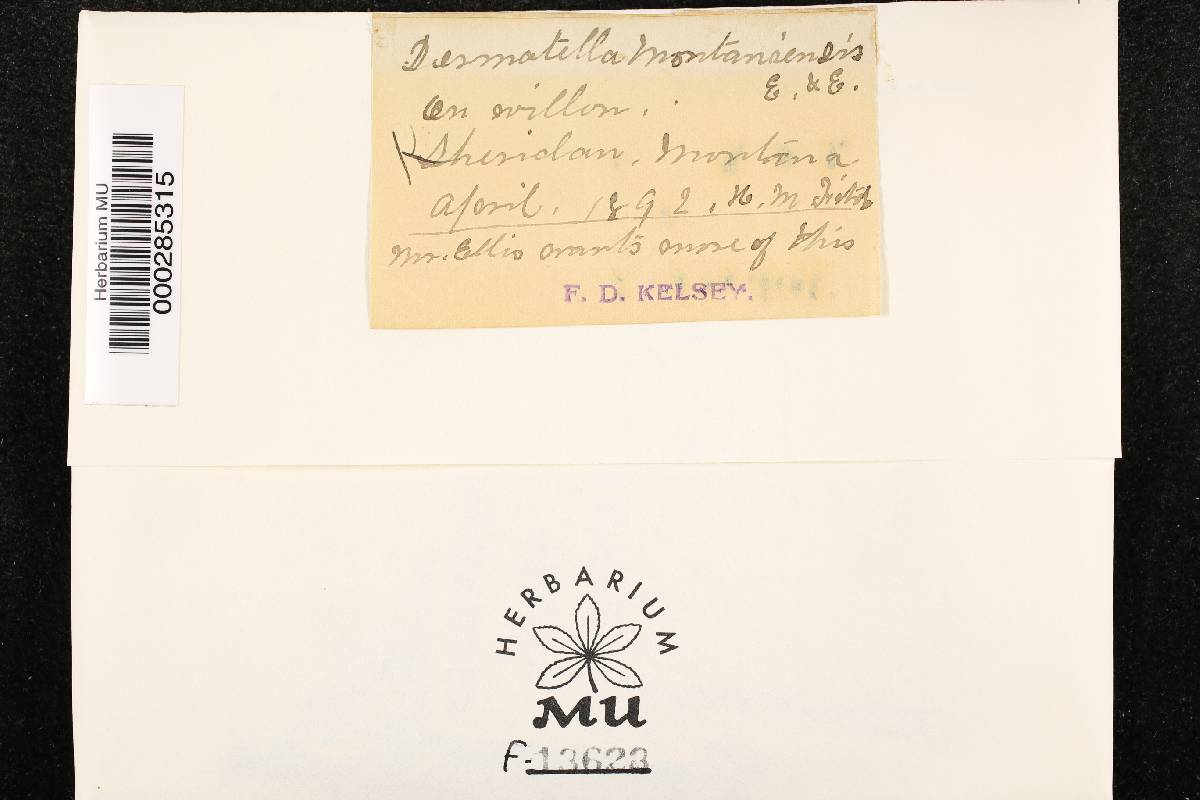 Dermatella Montaniensis
E. & E.
On willow.
Sheridan, Montana
April. 1892. H. M. Fitch
Mr. Ellis wants more of this
F. D. KELSEY.
Herbarium MU
000285315
HERBARIUM
MU
F-13623